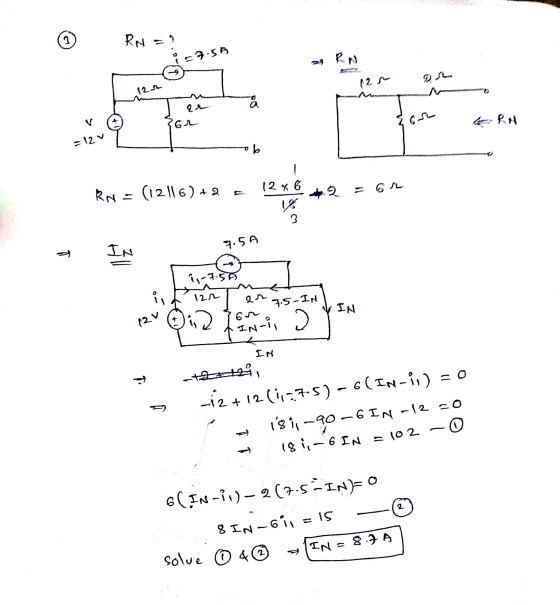 ③ RN = ?
i = 7.5A
12Ω
2Ω
a
V
= 12V
6Ω
b
⇒ RN
12Ω
2Ω
6Ω
← RN
RN = (12||6) + 2 = 12 x 6 / 18 + 2 = 6Ω
1
3
⇒ IN
7.5A
i₁-7.5A
i₁
12Ω
2Ω
7.5-IN
IN
12V
i₁
6Ω
IN-i₁
IN
⇒ -12 + 12i₁
⇒ -12 + 12(i₁-7.5) - 6(IN-i₁) = 0
⇒ 18i₁ - 90 - 6IN - 12 = 0
⇒ 18i₁ - 6IN = 102 — ①
6(IN-i₁) - 2(7.5-IN) = 0
8IN - 6i₁ = 15 — ②
Solve ① & ② ⇒ IN = 8.7A